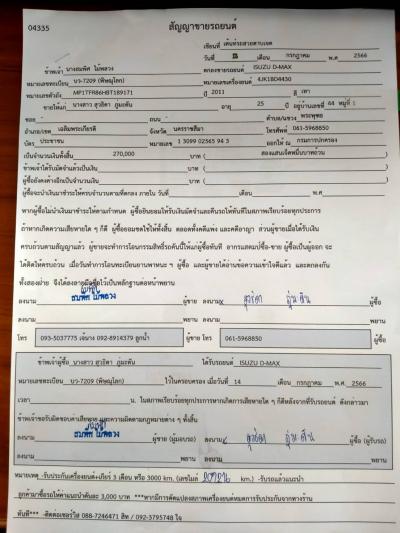 04335
สัญญาขายรถยนต์
เขียนที่ เต็นท์รถสวยสาบเจต
วันที่ เดือน กรกฎาคม พ.ศ. 2566
ข้าพเจ้า นางสมพิศ ไม้พลวง ตกลงขายรถยนต์ ISUZU D-MAX
หมายเลขทะเบียน บว-7209 (พิษณุโลก) หมายเลขเครื่อง 4JK1BD4430
หมายเลขตัวถัง MP1TFR86HBT189171 ปี 2011 สี เทา
ขายให้แก่ นางสาว สุวธิดา ภู่มะดัน อายุ 25 ปี อยู่บ้านเลขที่ 44 หมู่ที่ 1
ซอย - ถนน - ตำบล/แขวง พระพุทธ
อำเภอ/เขต เฉลิมพระเกียรติ จังหวัด นครราชสีมา โทรศัพท์ 061-5968850
บัตร ประชาชน หมายเลข 1 3099 02565 94 3 ออกให้ ณ กรมการปกครอง
เป็นจำนวนเงินทั้งสิ้น 270,000 บาท ( สองแสนเจ็ดหมื่นบาทถ้วน )
ข้าพเจ้าได้รับมัดจำแล้วเป็นเงิน บาท ( )
ผู้ซื้อยังคงค้างอีกเป็นจำนวนเงิน บาท ( )
ผู้ซื้อจะนำเงินมาชำระให้ครบจำนวนตามที่ตกลง ภายใน วันที่ เดือน พ.ศ.
หากผู้ซื้อไม่นำเงินมาชำระให้ตามกำหนด ผู้ซื้อยินยอมให้ริบเงินมัดจำและคืนรถให้ในสภาพเรียบร้อยทุกประการ
ถ้าหากเกิดความเสียหายใด ๆ ก็ดี ผู้ซื้อยอมชดใช้ให้ทั้งสิ้น ตลอดทั้งคดีแพ่ง และคดีอาญา ส่วนผู้ขายเมื่อได้รับเงิน
ครบถ้วนตามสัญญาแล้ว ผู้ขายจะทำการโอนกรรมสิทธิ์รถคันนี้ให้แก่ผู้ซื้อทันที อากรแสตมป์ซื้อ-ขาย ผู้ซื้อเป็นผู้ออก จะ
ได้คิดให้ครบถ้วน เมื่อวันทำการโอนทะเบียนยานพาหนะ ฯ ผู้ซื้อ และผู้ขายได้อ่านข้อความเข้าใจดีแล้ว และตกลงกัน
ทั้งสองฝ่าย จึงได้ลงลายมือชื่อไว้เป็นหลักฐานต่อหน้าพยาน
ลงนาม สมพิศ ไม้พลวง ผู้ขาย ลงนาม ผู้ซื้อ
ลงนาม พยาน ลงนาม พยาน
โทร 093-5037775 เจ๊นาง 092-8914379 ลูกน้ำ โทร 061-5968850
ข้าพเจ้าผู้ซื้อ นางสาว สุวธิดา ภู่มะดัน ได้รับรถยนต์ ISUZU D-MAX
หมายเลขทะเบียน บว-7209 (พิษณุโลก) ไว้ในครอบครอง เมื่อวันที่ 14 เดือน กรกฎาคม พ.ศ. 2566
เวลา น. ในสภาพเรียบร้อยทุกประการหากเกิดการเสียหายใด ๆ ก็ดีหลังจากที่รับรถยนต์ ดังกล่าวมา
ข้าพเจ้าขอรับผิดชอบค่าเสียหาย และความผิดตามกฎหมายต่าง ๆ ทั้งสิ้น
ลงนาม สมพิศ ไม้พลวง ผู้ขาย (ผู้มอบรถ) ลงนาม ผู้ซื้อ (ผู้รับรถ)
ลงนาม พยาน ลงนาม พยาน
หมายเหตุ -รับประกันเครื่องยนต์+เกียร์ 3 เดือน หรือ 3000 km. (เลขไมล์ ) -รับรถแล้วแนะนำ
ลูกค้ามาซื้อรถให้ค่าแนะนำคันละ 3,000 บาท ***หากมีการดัดแปลงสภาพเครื่องยนต์หมดการรับประกันจากทางร้าน
ทันที*** -ติดต่อเซอร์วิส 088-7246471 สิท / 092-3795748 ใจ